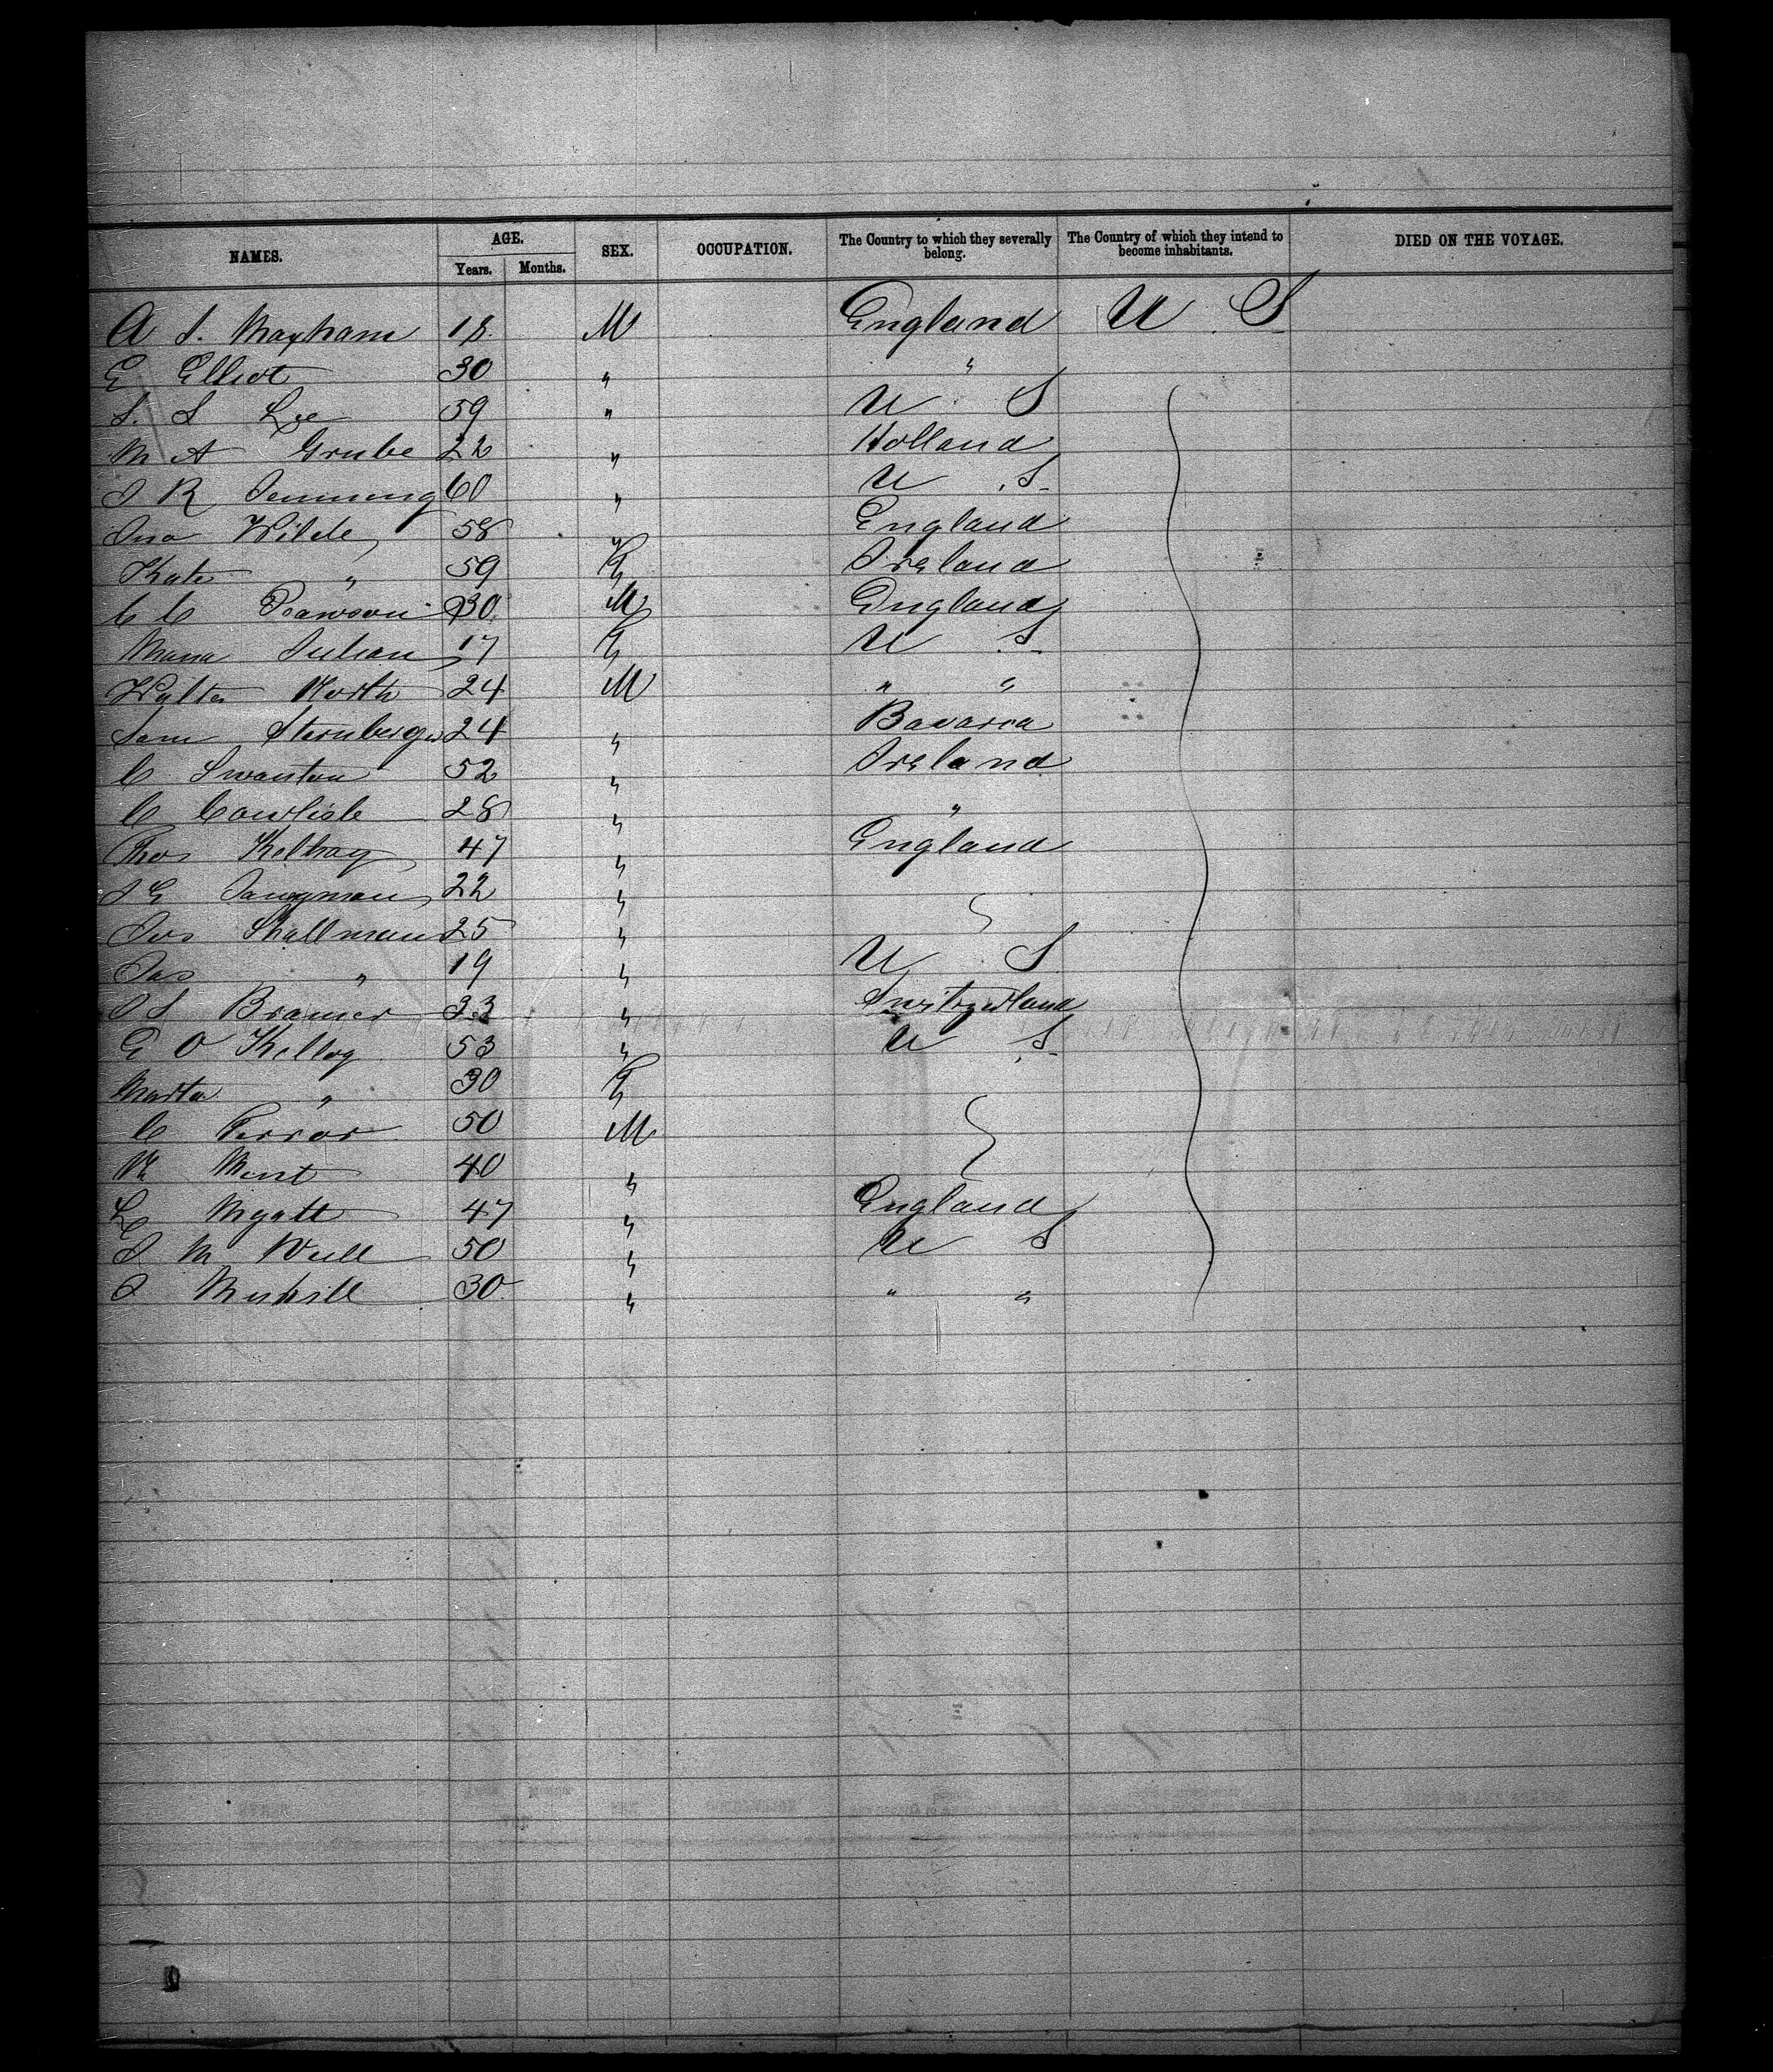 NAMES. AGE. SEX. OCCUPATION. The Country to which they severally belong. The Country of which they intend to become inhabitants. DIED ON THE VOYAGE.
Years. Months.
A S. Maxham 18 M England U S
E Elliot 30 " "
S. S Lee 59 " U S
M A Grube 22 " Holland
J R Jenning 60 " U S
Jno Wilde 58 " England
Kate " 59 F Ireland
C C Pearson 30 M England
Maria Julian 17 F U S
Walter North 24 M " "
Sam Sternberger 24 " Bavaria
C Swanton 52 " Ireland
C Carlisle 28 " "
Thos Kellray 47 " England
J E 22 "
Jos Shallman 25 "
Jas " 19 " U S
J S Bramer 33 " Switzerland
E O Kellog 53 " U S
Marta " 30 F
C Ferror 50 M
Ment 40 "
L Myatt 47 " England
J M Wull 50 " U S
J 30 " " "